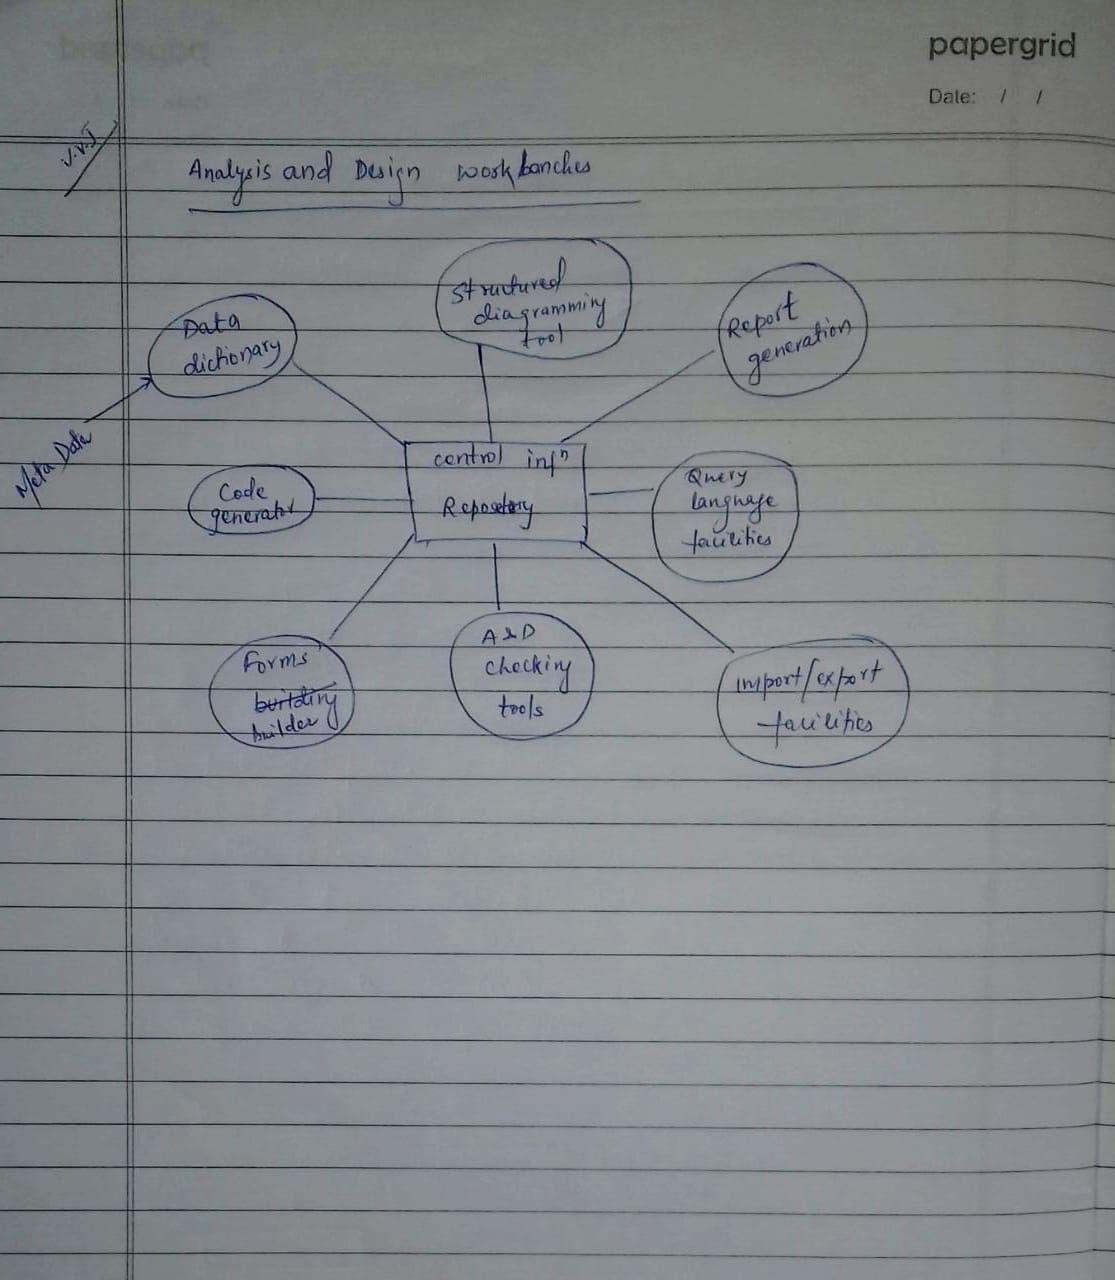 papergrid
Date: / /
V.V.I
Analysis and Design workbanches
Structured
diagramming
tool
Data
dictionary
Report
generation
Meta Data
control infⁿ
Repository
Code
generator
Query
language
facilities
Forms
building
builder
A & D
checking
tools
import/export
facilities